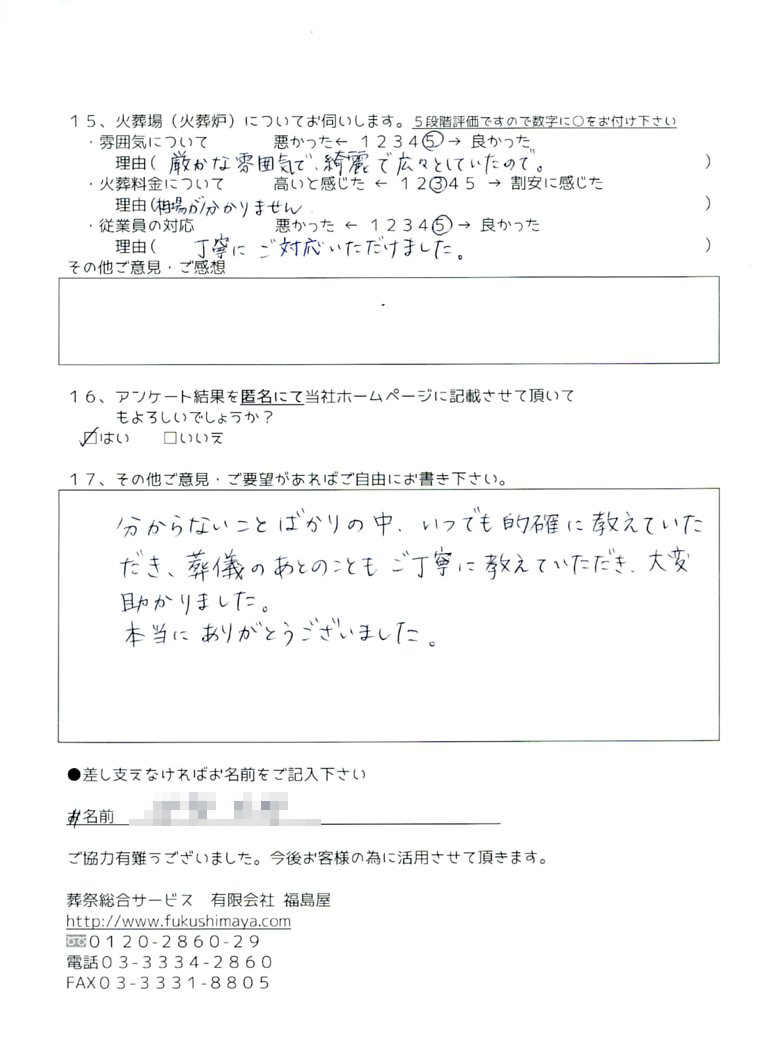 15、火葬場（火葬炉）についてお伺いします。５段階評価ですので数字に○をお付け下さい
・雰囲気について　悪かった← 1 2 3 4 5 → 良かった
理由( 厳かな雰囲気で、綺麗で広々としていたので。 )
・火葬料金について　高いと感じた ← 1 2 3 4 5 → 割安に感じた
理由(相場が分かりません )
・従業員の対応　悪かった ← 1 2 3 4 5 → 良かった
理由( 丁寧にご対応いただけました。 )
その他ご意見・ご感想
16、アンケート結果を匿名にて当社ホームページに記載させて頂いて
もよろしいでしょうか？
☑はい　□いいえ
17、その他ご意見・ご要望があればご自由にお書き下さい。
分からないことばかりの中、いつでも的確に教えていた
だき、葬儀のあとのこともご丁寧に教えていただき、大変
助かりました。
本当にありがとうございました。
●差し支えなければお名前をご記入下さい
お名前
ご協力有難うございました。今後お客様の為に活用させて頂きます。
葬祭総合サービス　有限会社 福島屋
http://www.fukushimaya.com
0120-2860-29
電話03-3334-2860
FAX03-3331-8805